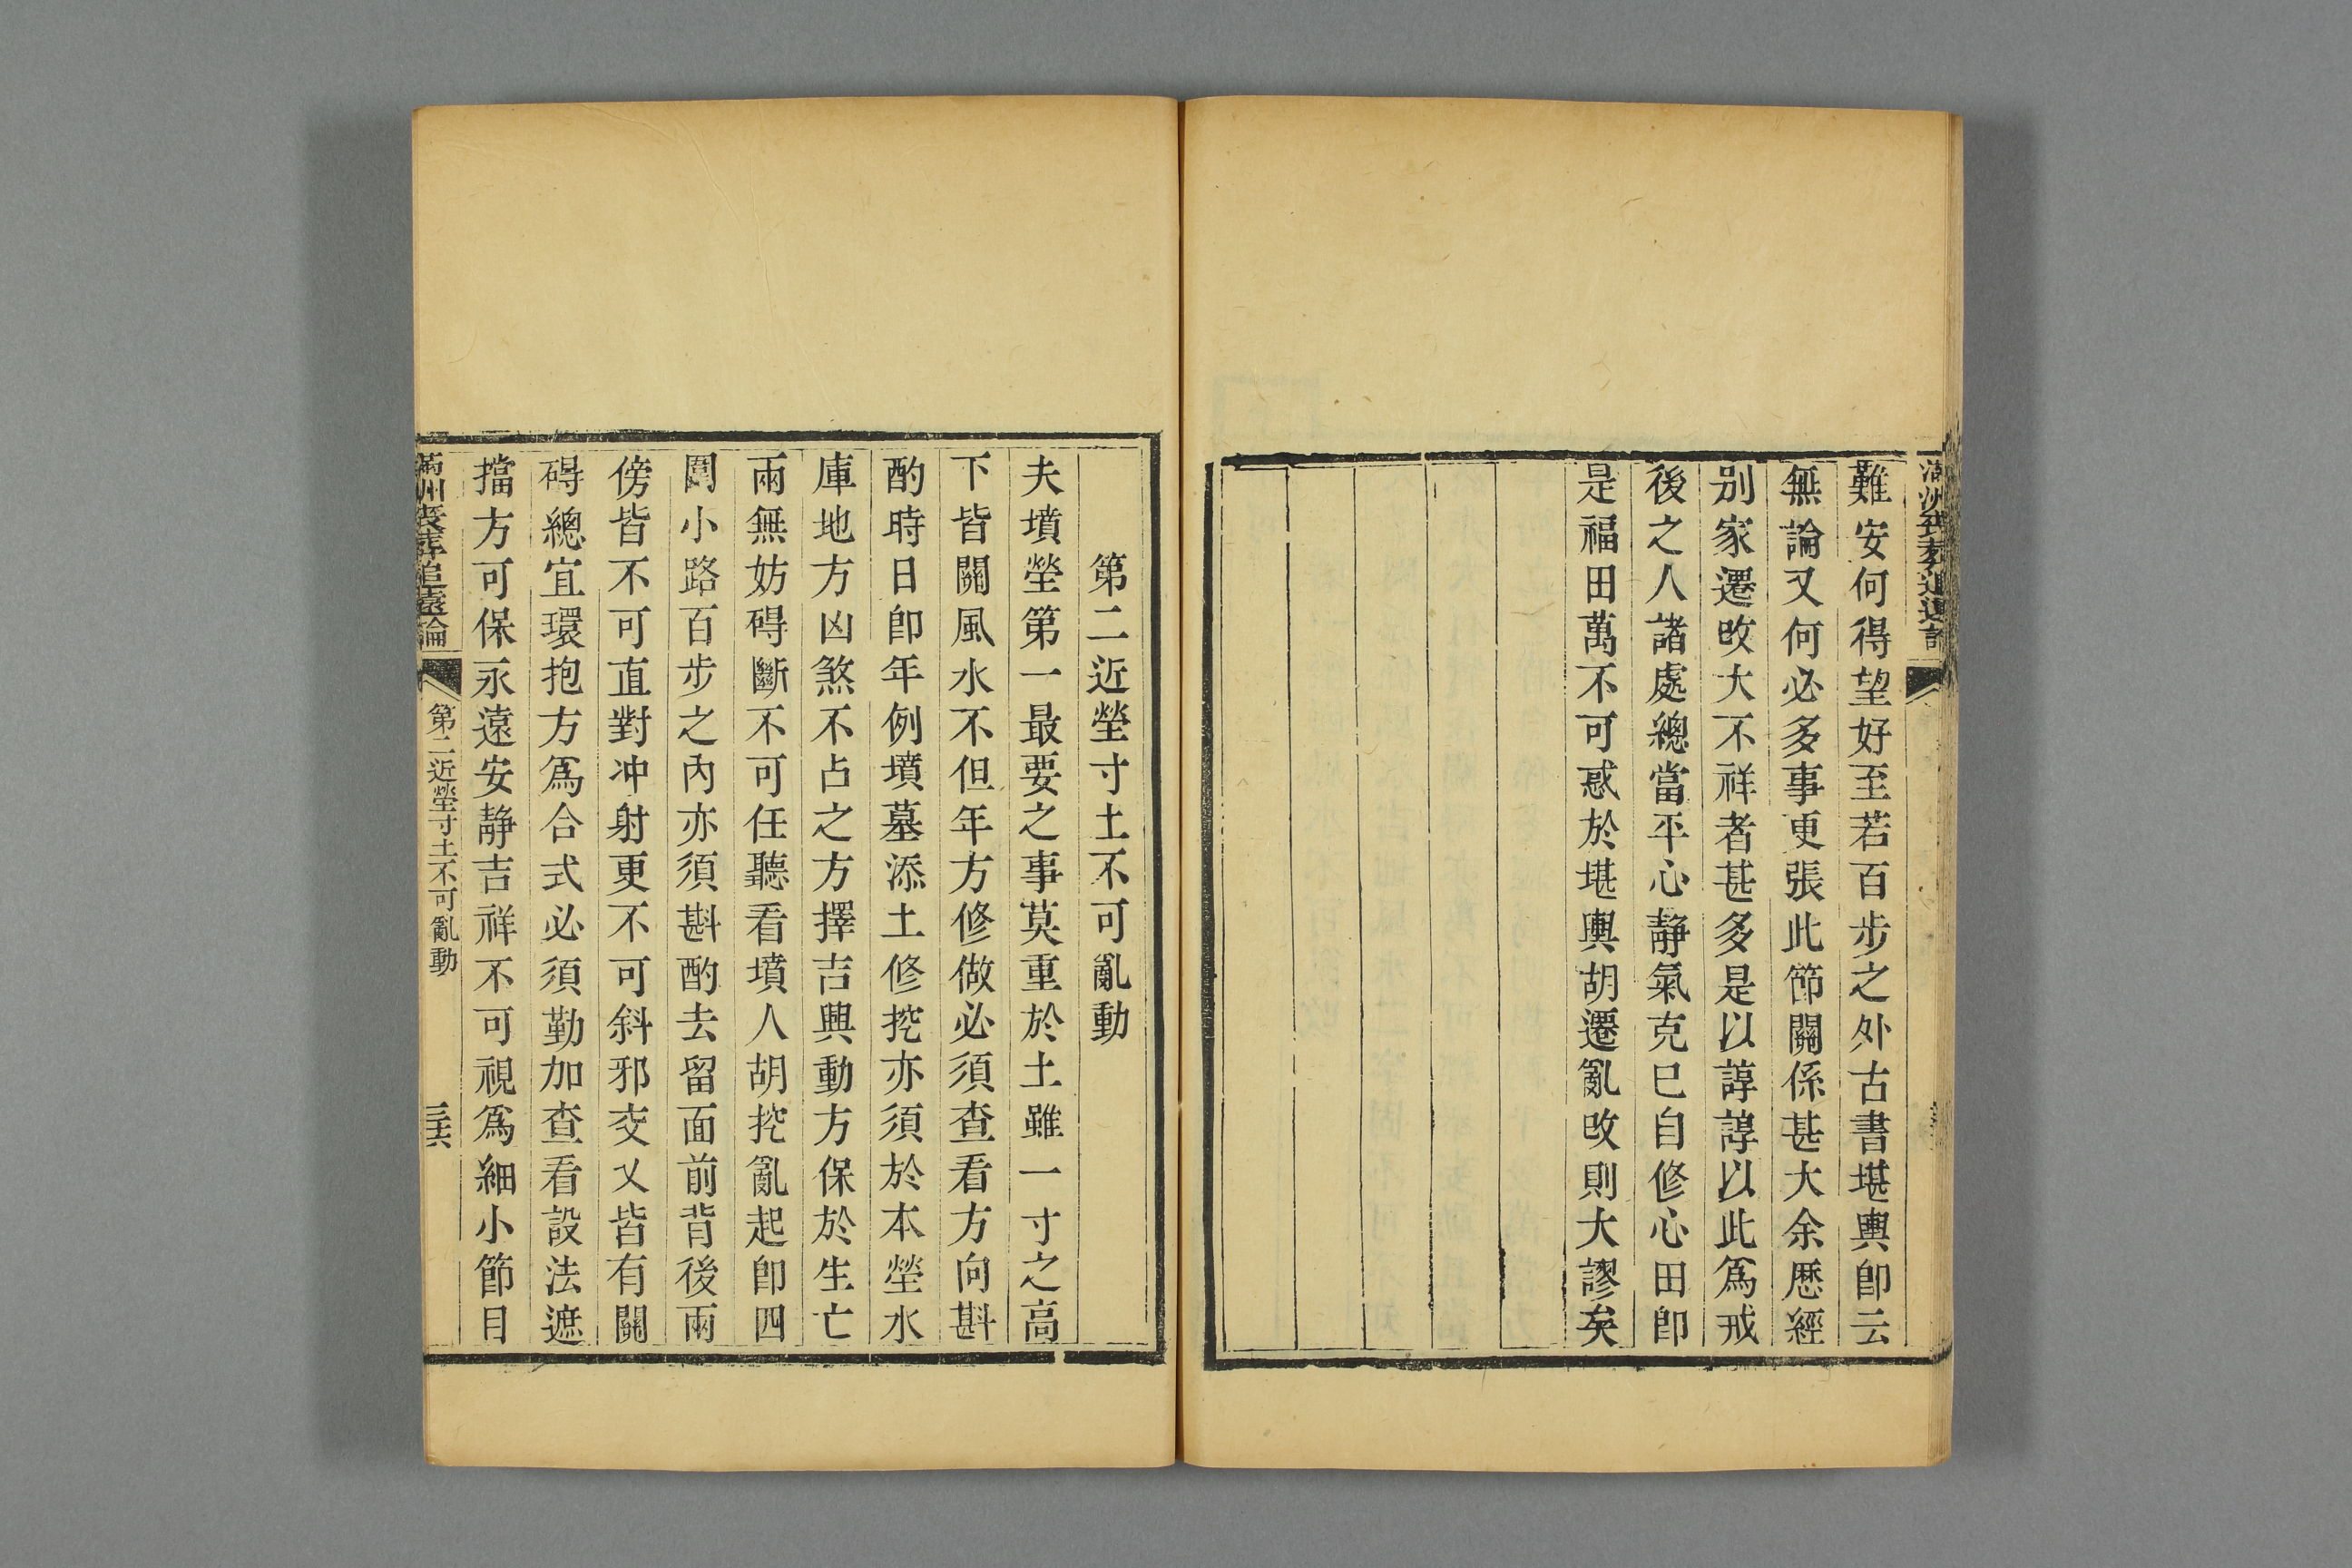 難安何得望好至若百步之外古書堪輿卽云
無論又何必多事更張此節關係甚大余歷經
别家遷改大不祥者甚多是以諄諄以此爲戒
後之人諸處總當平心靜氣克已自修心田卽
是福田萬不可惑於堪輿胡遷亂改則大謬矣
第二近塋寸土不可亂動
夫墳塋第一最要之事莫重於土雖一寸之高
下皆關風水不但年方修做必須查看方向斟
酌時日卽年例墳墓添土修挖亦須於本塋水
庫地方凶煞不占之方擇吉興動方保於生亡
兩無妨碍斷不可任聽看墳人胡挖亂起卽四
圍小路百步之內亦須斟酌去留面前背後兩
傍皆不可直對冲射更不可斜邪交乂皆有關
碍總宜環抱方爲合式必須勤加查看設法遮
擋方可保永遠安靜吉祥不可視爲細小節目
滿洲喪葬追遠論
第二近塋寸土不可亂動
三十六